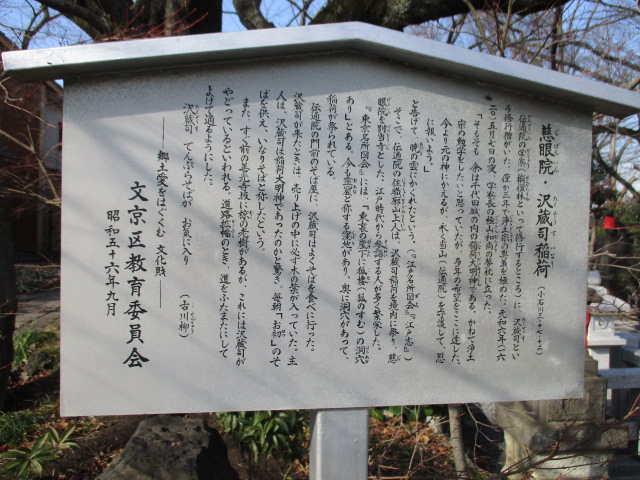 慈眼院・沢蔵司稲荷 (小石川三-十七-十二)
伝通院の学寮(栴檀林といって修行するところ)に、沢蔵司とい
う修行僧がいた。僅か三年で浄土宗の奥義を極めた。元和六年(一六
二〇)五月七日の夜、学寮長の極山和尚の夢枕に立った。
「そもそも、余は千代田城の内の稲荷大明神である。かねて浄土
宗の勉学をしたいと思っていたが、多年の希望をここに達した。
今より元の神にかえるが、永く当山(伝通院)を守護して、恩
に報いよう。」
と告げて、暁の雲にかくれたという。(「江戸名所図会」「江戸志」)
そこで、伝通院の住職廓山上人は、沢蔵司稲荷を境内に祭り、慈
眼院を別当寺とした。江戸時代から参詣する人が多く繁栄した。
「東京名所図会」には、「東裏の崖下に狐棲(狐のすむ)の洞穴
あり」とある。今も霊窟と称する窪地があり、奥に洞穴があって、
稲荷が祭られている。
伝通院の門前のそば屋に、沢蔵司はよくそばを食べに行った。
沢蔵司が来たときは、売り上げの中に必ず木の葉が入っていた。主
人は、沢蔵司は稲荷大明神であったのかと驚き、毎朝「お初」のそ
ばを供え、いなりそばと称したという。
また、すぐ前の善光寺坂に椋の老樹があるが、これには沢蔵司が
やどっているといわれる。道路拡幅のとき、道をふたまたにして
よけて通るようにした。
沢蔵司 てんぷらそばが お気に入り (古川柳)
――郷土愛をはぐくむ 文化財――
文京区教育委員会
昭和五十六年九月